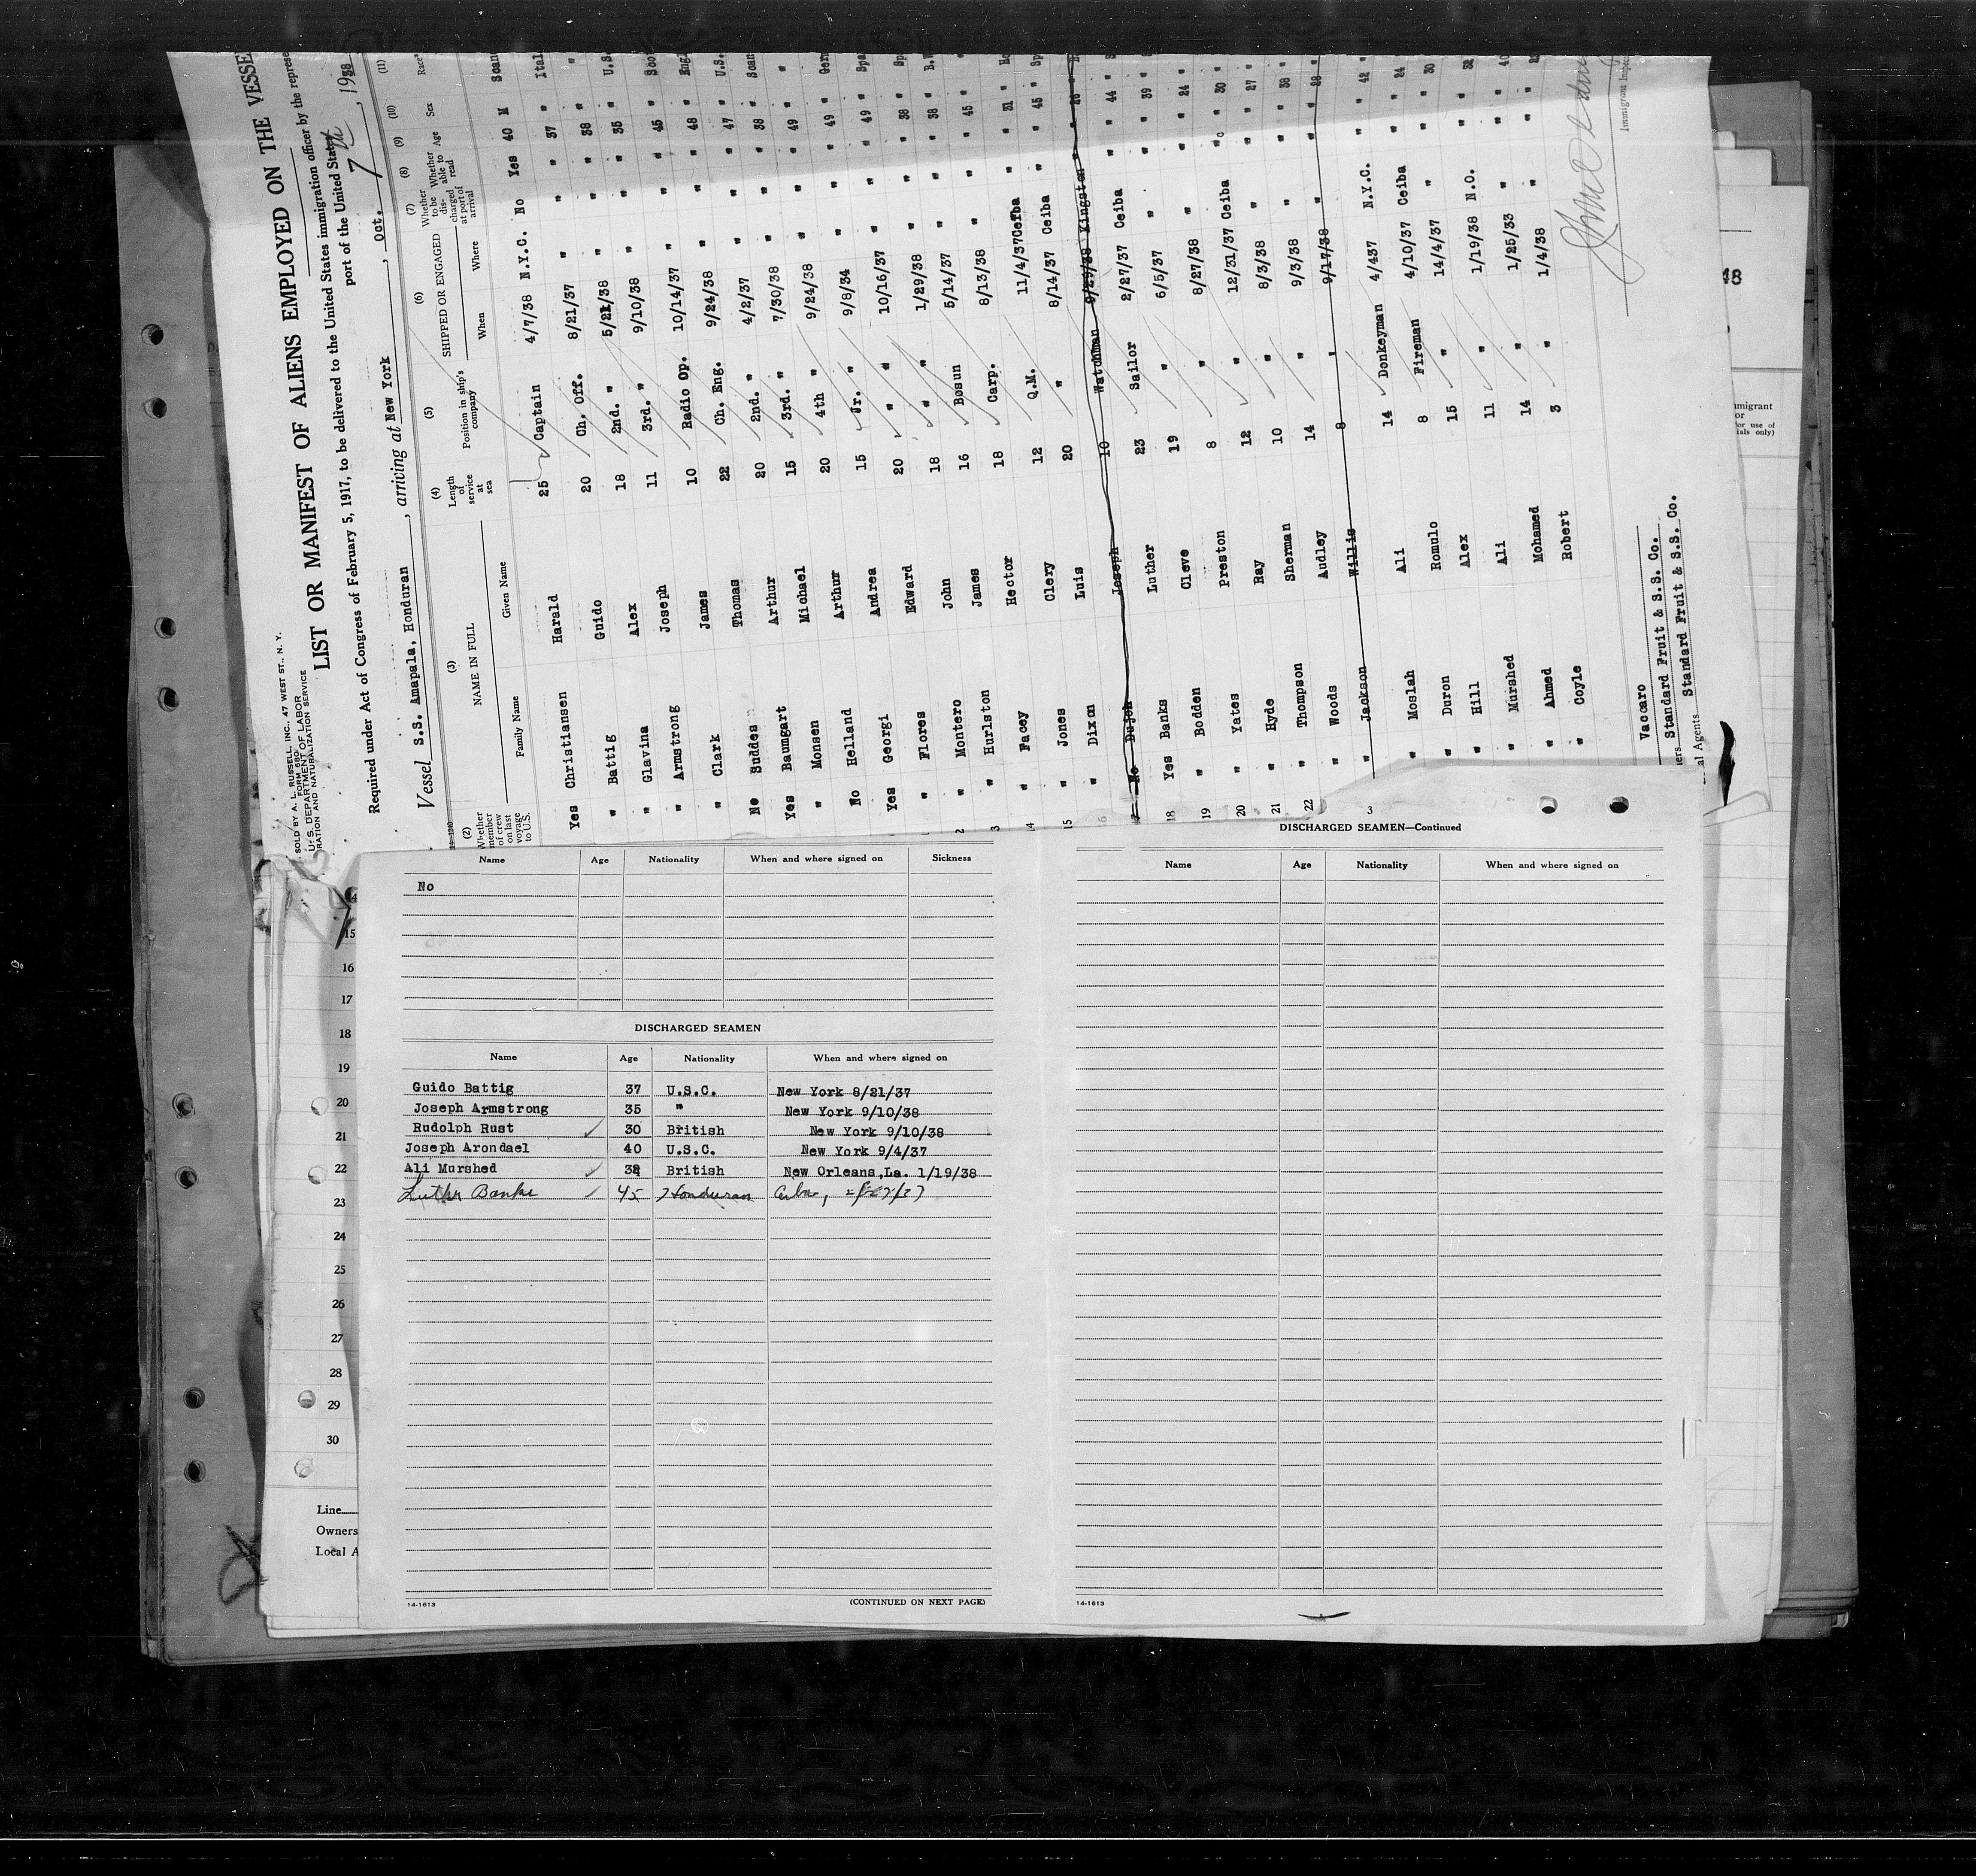 SOLD BY A. L. RUSSELL, INC., 47 WEST ST., N. Y.
FORM 680
U. S. DEPARTMENT OF LABOR
RATION AND NATURALIZATION SERVICE
LIST OR MANIFEST OF ALIENS EMPLOYED ON THE VESSE
Required under Act of Congress of February 5, 1917, to be delivered to the United States immigration officer by the represe
port of the United States
Vessel S.S. Amapala, Honduran, arriving at New York, Oct. 7th, 1938
(2) (3) (4) (5) (6) (7) (8) (9) (10) (11)
Whether member of crew on last voyage to U.S.
NAME IN FULL
Family Name Given Name
Length of service at sea
Position in ship's company
SHIPPED OR ENGAGED
When Where
Whether to be discharged at port of arrival
Whether able to read
Age Sex Race
Yes Christiansen Harald 25 Captain 4/7/38 N.Y.C. No Yes 40 M Scan
" Battig Guido 20 Ch. Off. 8/21/37 " " " 37 " Ital
" Glavina Alex 18 2nd. " 5/21/38 " " " 38 " "
" Armstrong Joseph 11 3rd. " 9/10/38 " " " 35 " U.S.
" Clark James 10 Radio Op. 10/14/37 " " " 45 "
No Suddes Thomas 22 Ch. Eng. 9/24/38 " " " 48 " Eng.
Yes Baumgart Arthur 20 2nd. " 4/2/37 " " " 47 " U.S.
" Monsen Michael 15 3rd. " 7/30/38 " " " 38 " Scan
No Helland Arthur 20 4th " 9/24/38 " " " 49 " "
Yes Georgi Andrea 15 Jr. " 9/8/34 " " " 49 "
" Flores Edward 20 " 10/16/37 " " " 49 " Spa
" Montero John 18 " 1/29/38 " " " 38 " Sp
" Hurlston James 16 Bosun 5/14/37 " " " 38 "
" Facey Hector 18 Carp. 8/13/38 " " " 45 "
" Jones Clery 12 Q.M. 11/4/37 Ceiba " " 31 "
" Dixon Luis 20 " 8/14/37 Ceiba " " 45 " Sp
No Dutch Joseph 10 Watchman 9/29/38 Kingston " " 26 "
18 Yes Banks Luther 23 Sailor 2/27/37 Ceiba " " 44 "
19 " Bodden Cleve 19 " 6/5/37 " " " 39 "
20 " Yates Preston 8 " 8/27/38 " " " 24 "
21 " Hyde Ray 12 " 12/31/37 Ceiba " " 30 "
22 " Thompson Sherman 10 " 8/3/38 " " " 27 "
" Woods Audley 14 " 9/3/38 " " " 38 "
" Jackson Willis 8 " 9/17/38 " " " 28 "
" Moslah Ali 14 Donkeyman 4/437 N.Y.C. " " 42 "
" Duron Romulo 8 Fireman 4/10/37 Ceiba " " 24 "
" Hill Alex 15 " 14/4/37 " " " 30 "
" Murshed Ali 11 " 1/19/38 N.O. " " 32 "
" Ahmed Mohamed 14 " 1/25/33 " " "
" Coyle Robert 3 " 1/4/38 " " "
Immigrant Inspec
Vaccaro
Standard Fruit & S.S. Co.
Standard Fruit & S.S. Co.
al Agents
Name Age Nationality When and where signed on Sickness
No
DISCHARGED SEAMEN
Name Age Nationality When and where signed on
Guido Battig 37 U.S.C. New York 8/21/37
Joseph Armstrong 35 " New York 9/10/38
Rudolph Rust 30 British New York 9/10/38
Joseph Arondael 40 U.S.C. New York 9/4/37
Ali Murshed 32 British New Orleans,La. 1/19/38
Luther Banks 45 Honduran Ceiba,
14-1613 (CONTINUED ON NEXT PAGE)
DISCHARGED SEAMEN—Continued
Name Age Nationality When and where signed on
14-1613
15
16
17
18
19
20
21
22
23
24
25
26
27
28
29
30
Line
Owners
Local A
migrant
or
for use of
ials only)